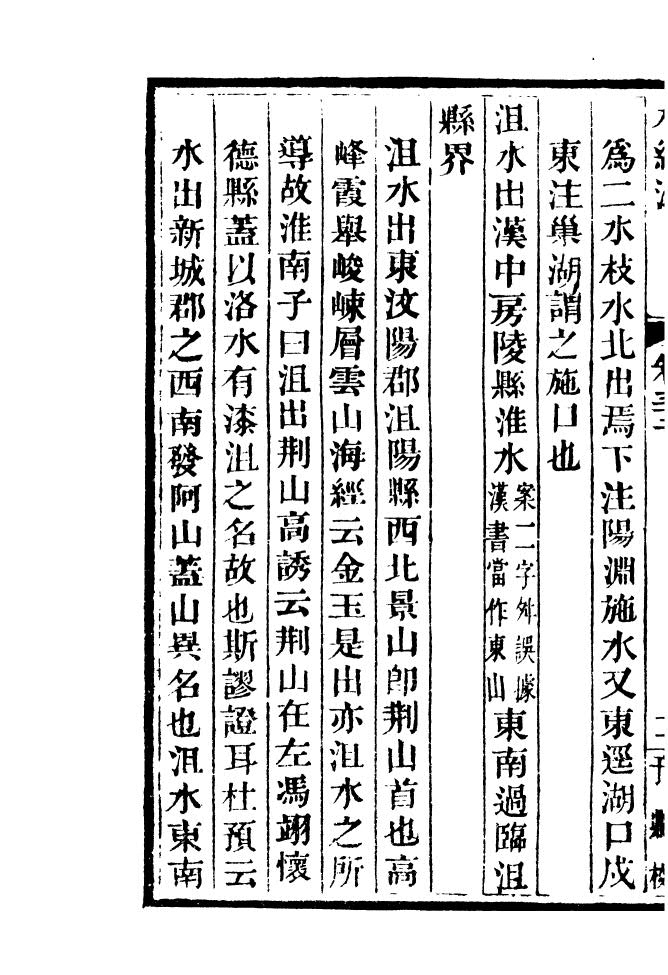 爲二水枝水北出焉下注陽淵施水又東逕湖口戍
東注巢湖謂之施口也
沮水出漢中房陵縣淮水案二字舛誤據漢書當作東山東南過臨沮
縣界
沮水出東汶陽郡沮陽縣西北景山卽荆山首也高
峰霞舉峻崍層雲山海經云金玉是出亦沮水之所
導故淮南子曰沮出荆山高誘云荆山在左馮翊懷
德縣蓋以洛水有漆沮之名故也斯謬證耳杜預云
水出新城郡之西南發阿山蓋山異名也沮水東南